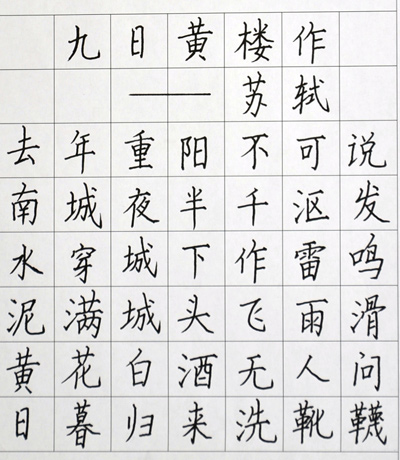 九日黄楼作
——苏轼
去年重阳不可说
南城夜半千沤发
水穿城下作雷鸣
泥满城头飞雨滑
黄花白酒无人问
日暮归来洗靴韈